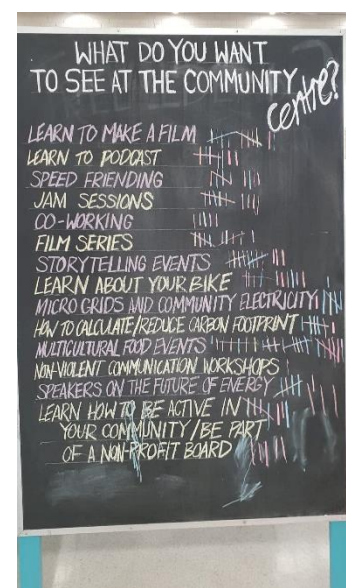 WHAT DO YOU WANT
TO SEE AT THE COMMUNITY
CENTRE?
LEARN TO MAKE A FILM
LEARN TO PODCAST
SPEED FRIENDING
JAM SESSIONS
CO-WORKING
FILM SERIES
STORYTELLING EVENTS
LEARN ABOUT YOUR BIKE
MICRO GRIDS AND COMMUNITY ELECTRICITY
HOW TO CALCULATE/REDUCE CARBON FOOTPRINT
MULTICULTURAL FOOD EVENTS
NON-VIOLENT COMMUNICATION WORKSHOPS
SPEAKERS ON THE FUTURE OF ENERGY
LEARN HOW TO BE ACTIVE IN
YOUR COMMUNITY/BE PART
OF A NON-PROFIT BOARD